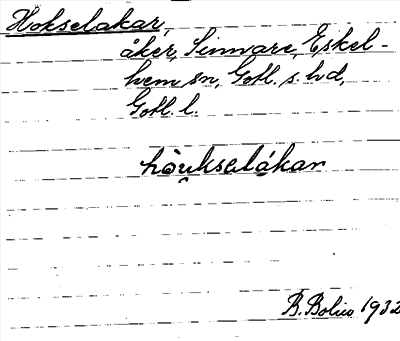 Hokselakar,
åker, Sinnare, Eskel-
hem sn, Gotl. s. hd,
Gotl. l.
hò̯ukselákar
B. Bolin 1932